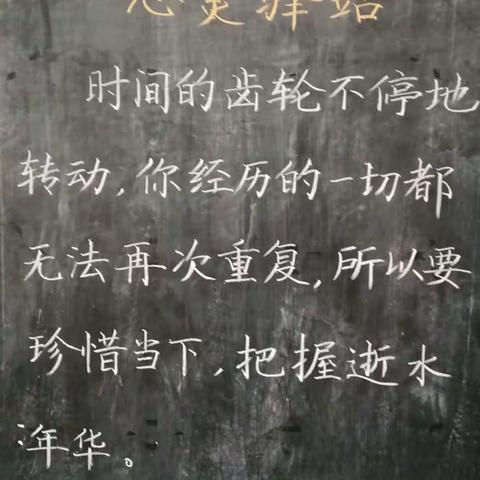 心灵驿站
时间的齿轮不停地
转动,你经历的一切都
无法再次重复,所以要
珍惜当下,把握逝水
年华。